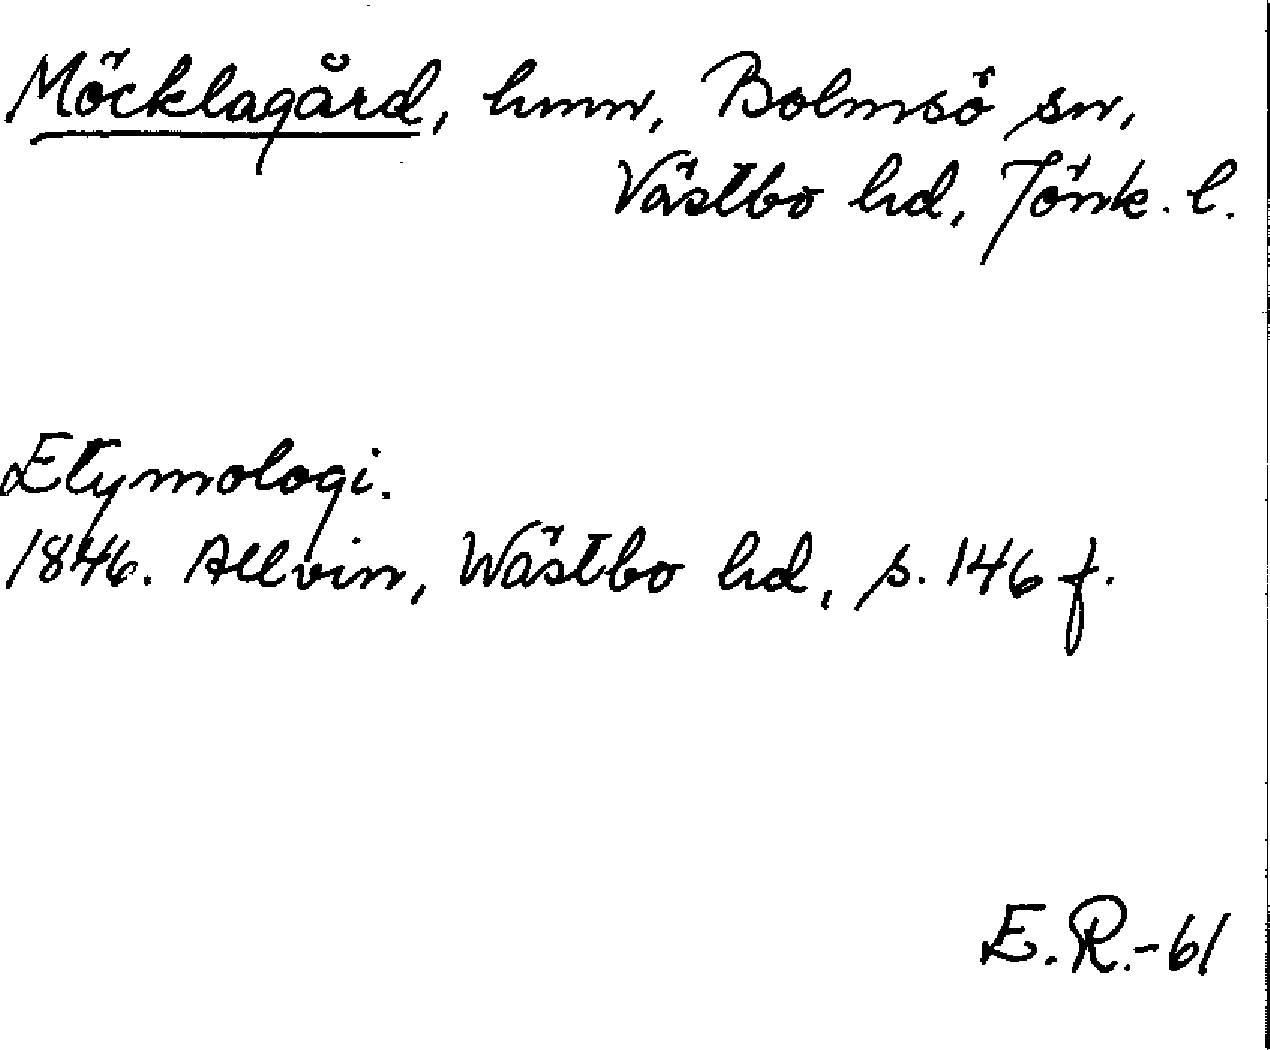 Möcklagård, hmn, Bolmsö sn,
Västbo hd, Jönk. l.
Etymologi.
1846. Allvin, Wästbo hd, s. 146 f.
E.R.-61